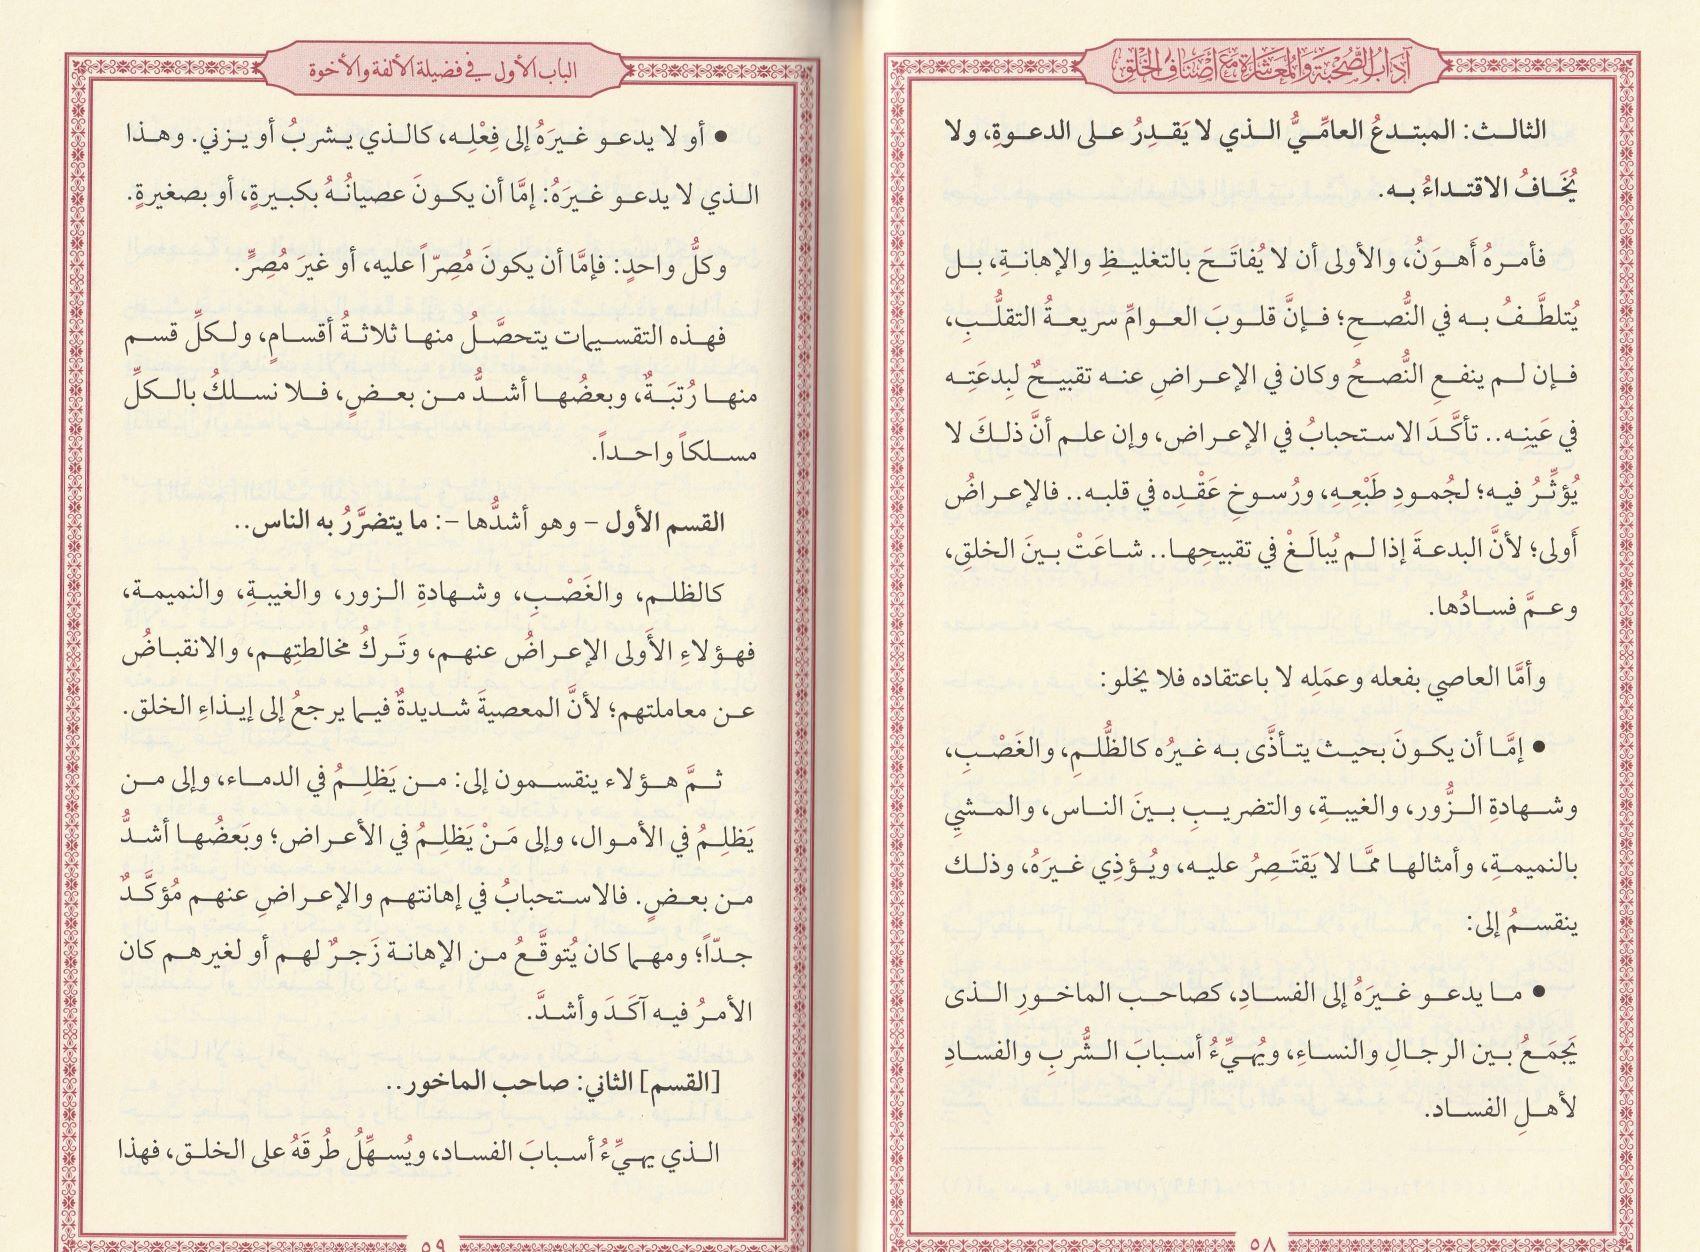 آدَابُ الصُّحْبَةِ وَالْمُعَاشَرَةِ مَعَ أَصْنَافِ الْخَلْقِ
الثالث: المبتدعُ العامِّيُّ الذي لا يَقدِرُ على الدعوةِ، ولا
يُخَافُ الاقتداءُ به.
فأمرهُ أَهوَنُ، والأولى أن لا يُفاتَحَ بالتغليظِ والإهانةِ، بل
يُتلطَّفُ به في النُّصحِ؛ فإنَّ قلوبَ العوامِّ سريعةُ التقلُّبِ،
فإن لم ينفعِ النُّصحُ وكان في الإعراضِ عنه تقبيحٌ لبِدعَتِه
في عَينِه.. تأكَّدَ الاستحبابُ في الإعراض، وإن علم أنَّ ذلكَ لا
يُؤثِّرُ فيه؛ لجُمودِ طَبْعِهِ، ورُسوخِ عَقْدِه في قلبه.. فالإعراضُ
أَولى؛ لأنَّ البدعةَ إذا لم يُبالَغْ في تقبيحِها.. شاعَتْ بينَ الخلقِ،
وعمَّ فسادُها.
وأمَّا العاصي بفعله وعمَلِه لا باعتقاده فلا يخلو:
• إمَّا أن يكونَ بحيث يتأذَّى به غيرُه كالظُّلمِ، والغَصْبِ،
وشهادةِ الزُّور، والغيبةِ، والتضريبِ بينَ الناس، والمشيِ
بالنميمةِ، وأمثالها ممَّا لا يَقتَصِرُ عليه، ويُؤذِي غيرَهُ، وذلك
ينقسمُ إلى:
• ما يدعو غيرَهُ إلى الفسادِ، كصاحب الماخورِ الذى
يَجمَعُ بين الرجالِ والنساءِ، ويُهيِّءُ أسبابَ الشُّربِ والفسادِ
لأهلِ الفساد.
٥٨
الباب الأول في فضيلة الألفة والأخوة
• أو لا يدعو غيرَهُ إلى فِعْلِه، كالذي يشربُ أو يزني. وهذا
الذي لا يدعو غيرَهُ: إمَّا أن يكونَ عصيانُهُ بكبيرةٍ، أو بصغيرةٍ.
وكلُّ واحدٍ: فإمَّا أن يكونَ مُصِرّاً عليه، أو غيرَ مُصِرٍّ.
فهذه التقسيمات يتحصَّلُ منها ثلاثةُ أقسامٍ، ولكلِّ قسم
منها رُتبَةٌ، وبعضُها أشدُّ من بعضٍ، فلا نسلكُ بالكلِّ
مسلكاً واحداً.
القسم الأول – وهو أشدُّها –: ما يتضرَّرُ به الناس..
كالظلم، والغَصْبِ، وشهادةِ الزور، والغيبةِ، والنميمة،
فهؤلاءِ الأَولى الإعراضُ عنهم، وتَركُ مخالطتِهم، والانقباضُ
عن معاملتهم؛ لأنَّ المعصيةَ شديدةٌ فيما يرجعُ إلى إيذاءِ الخلق.
ثمَّ هؤلاء ينقسمون إلى: من يَظلِمُ في الدماء، وإلى من
يَظلِمُ في الأموال، وإلى مَنْ يَظلِمُ في الأعراض؛ وبَعضُها أشدُّ
من بعضٍ. فالاستحبابُ في إهانتهم والإعراضِ عنهم مُؤكَّدٌ
جدّاً؛ ومهما كان يُتوقَّعُ من الإهانة زَجرٌ لهم أو لغيرهم كان
الأمرُ فيه آكَدَ وأشدَّ.
[القسم] الثاني: صاحب الماخور..
الذي يهيِّءُ أسبابَ الفساد، ويُسهِّلُ طُرقَهُ على الخلق، فهذا
٥٩